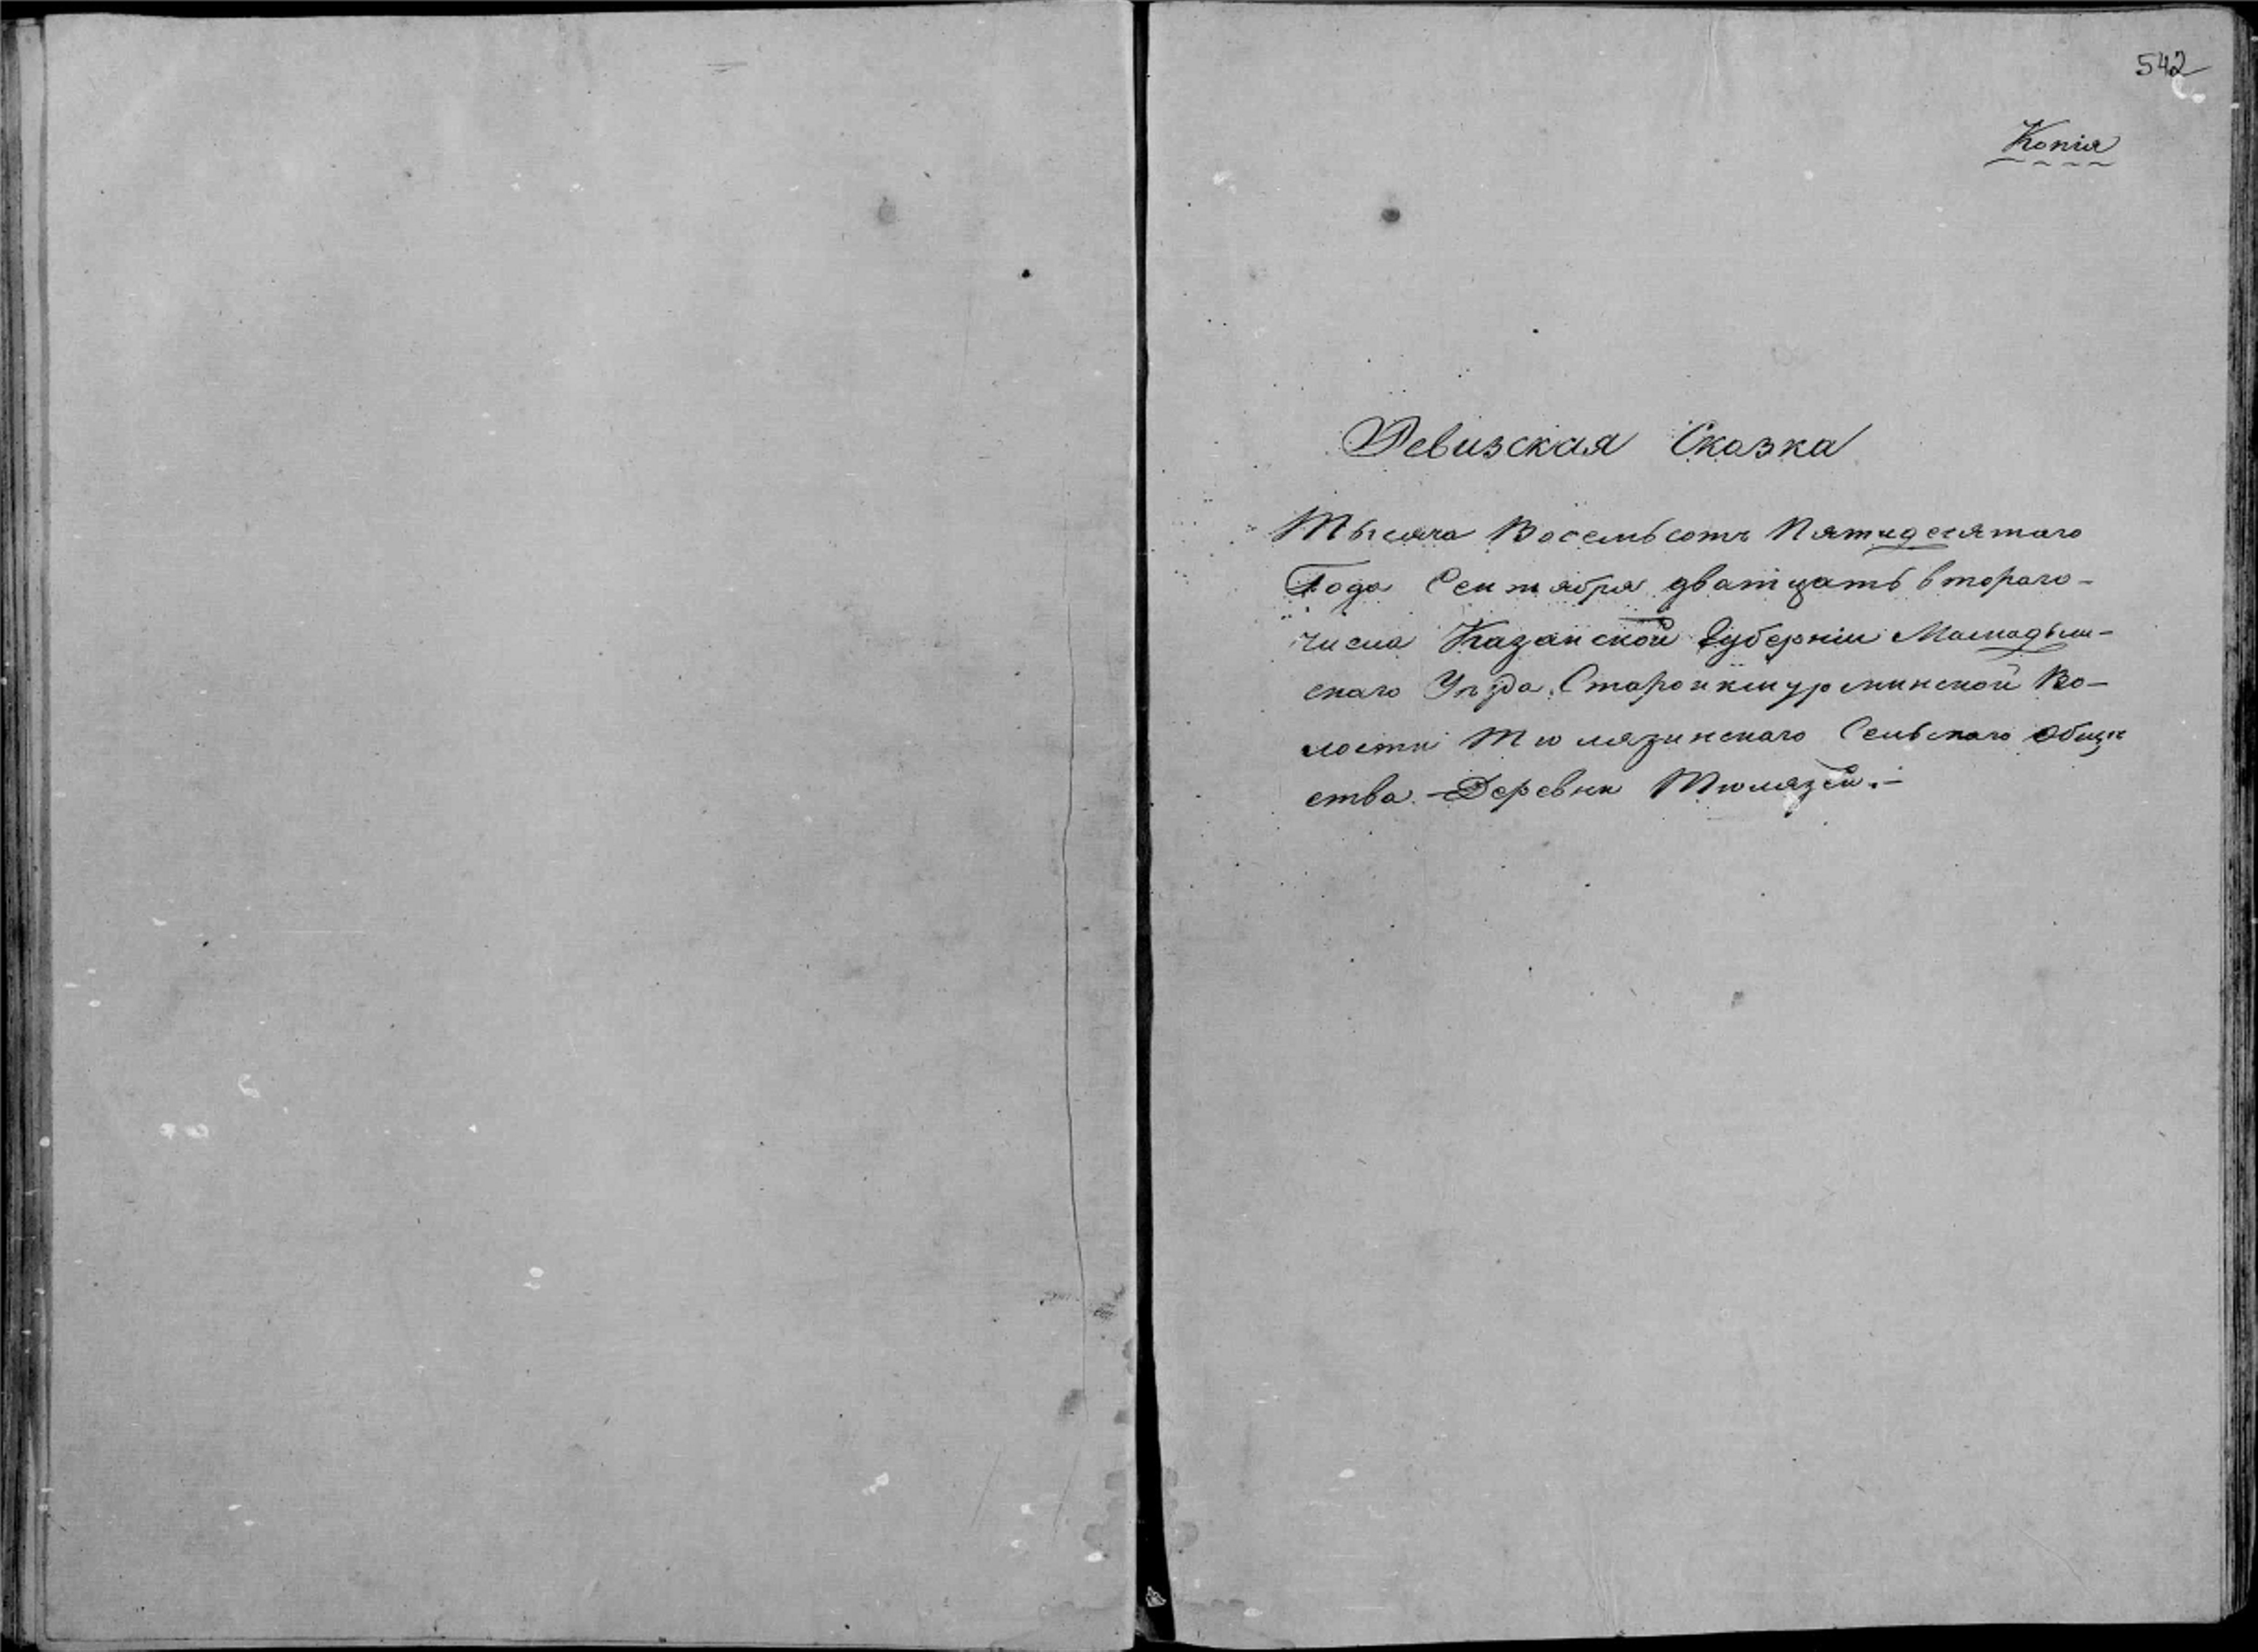 542
Копія
Ревизская Сказка
Тысяча Восемьсотъ Пятидесятаго
Года Сентября дватцать втораго-
числа Казанской Губерніи Мамадыш-
скаго Уѣзда Старойкшурминской Во-
лости Тюлязинскаго Сельскаго Обще
ства. - Деревни Тюлязей. -